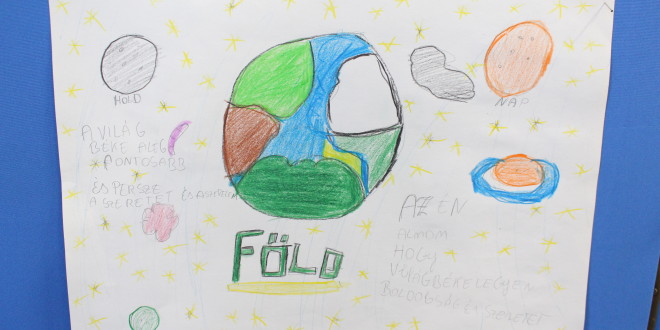 HOLD
NAP
A VILÁG
BÉKE A LEG
FONTOSABB
ÉS PERSZE
A SZERETET ÉS A
FÖLD
AZ ÉN
ÁLMOM
HOGY
VILÁGBÉKE LEGYEN
BOLDOGSÁG SZERETET